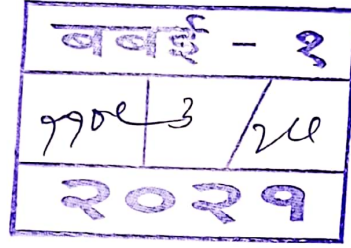 बबई - १
११०८ ३ / २८
२०२१